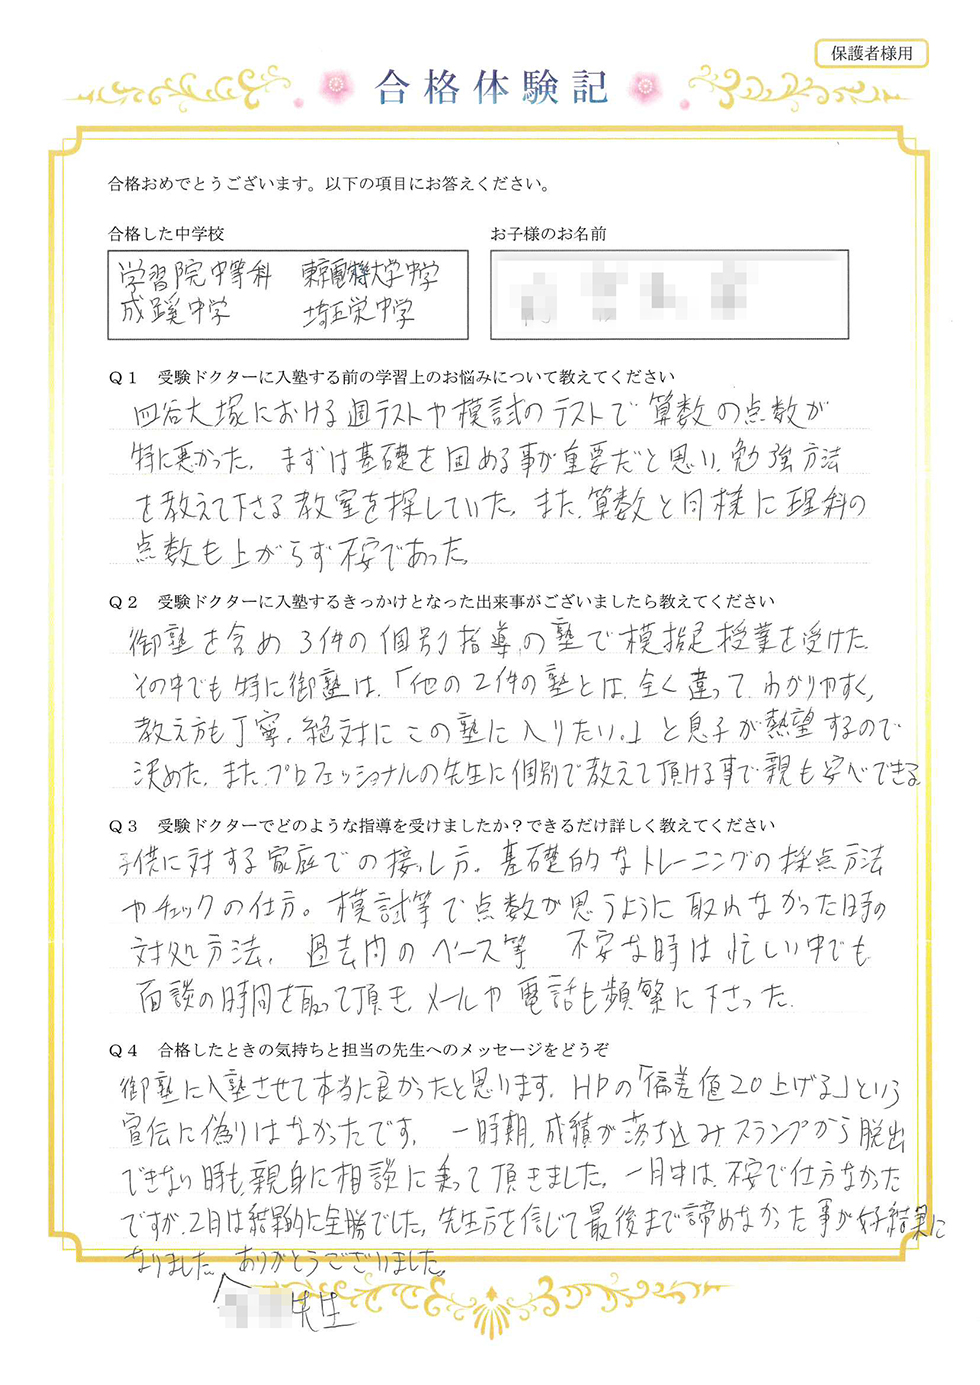 保護者様用
合格体験記
合格おめでとうございます。以下の項目にお答えください。
合格した中学校
お子様のお名前
学習院中等科 東京電機大学中学
成蹊中学 埼玉栄中学
Q1 受験ドクターに入塾する前の学習上のお悩みについて教えてください
四谷大塚における週テストや模試のテストで算数の点数が
特に悪かった。まずは基礎を固める事が重要だと思い、勉強方法
を教えて下さる教室を探していた。また、算数と同様に理科の
点数も上がらず不安であった。
Q2 受験ドクターに入塾するきっかけとなった出来事がございましたら教えてください
御塾を含め3件の個別指導の塾で模擬授業を受けた。
その中でも特に御塾は、「他の2件の塾とは、全く違って、わかりやすく、
教え方も丁寧。絶対にこの塾に入りたい。」と息子が熱望するので
決めた。また、プロフェッショナルの先生に個別で教えて頂ける事で親も安心できる
Q3 受験ドクターでどのような指導を受けましたか?できるだけ詳しく教えてください
子供に対する家庭での接し方。基礎的なトレーニングの採点方法
やチェックの仕方。模試等で点数が思うように取れなかった時の
対処方法。過去問のペース等 不安な時は忙しい中でも
面談の時間を取って頂き、メールや電話も頻繁に下さった。
Q4 合格したときの気持ちと担当の先生へのメッセージをどうぞ
御塾に入塾させて本当に良かったと思います。HPの「偏差値20上げる」という
宣伝に偽りはなかったです。一時期、成績が落ち込み、スランプから脱出
できない時も、親身に相談に乗って頂きました。一月中は、不安で仕方なかった
ですが、2月は結果的に全勝でした。先生方を信じて最後まで諦めなかった事が好結果に
なりました。ありがとうございました。
先生